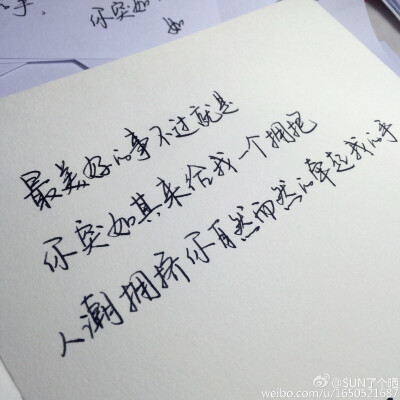 手.
你突如
如
最美好的事不过就是
你突如其来给我一个拥抱
人潮拥挤你自然而然的牵起我的手
@SUN了个晒
weibo.com/u/1650521687